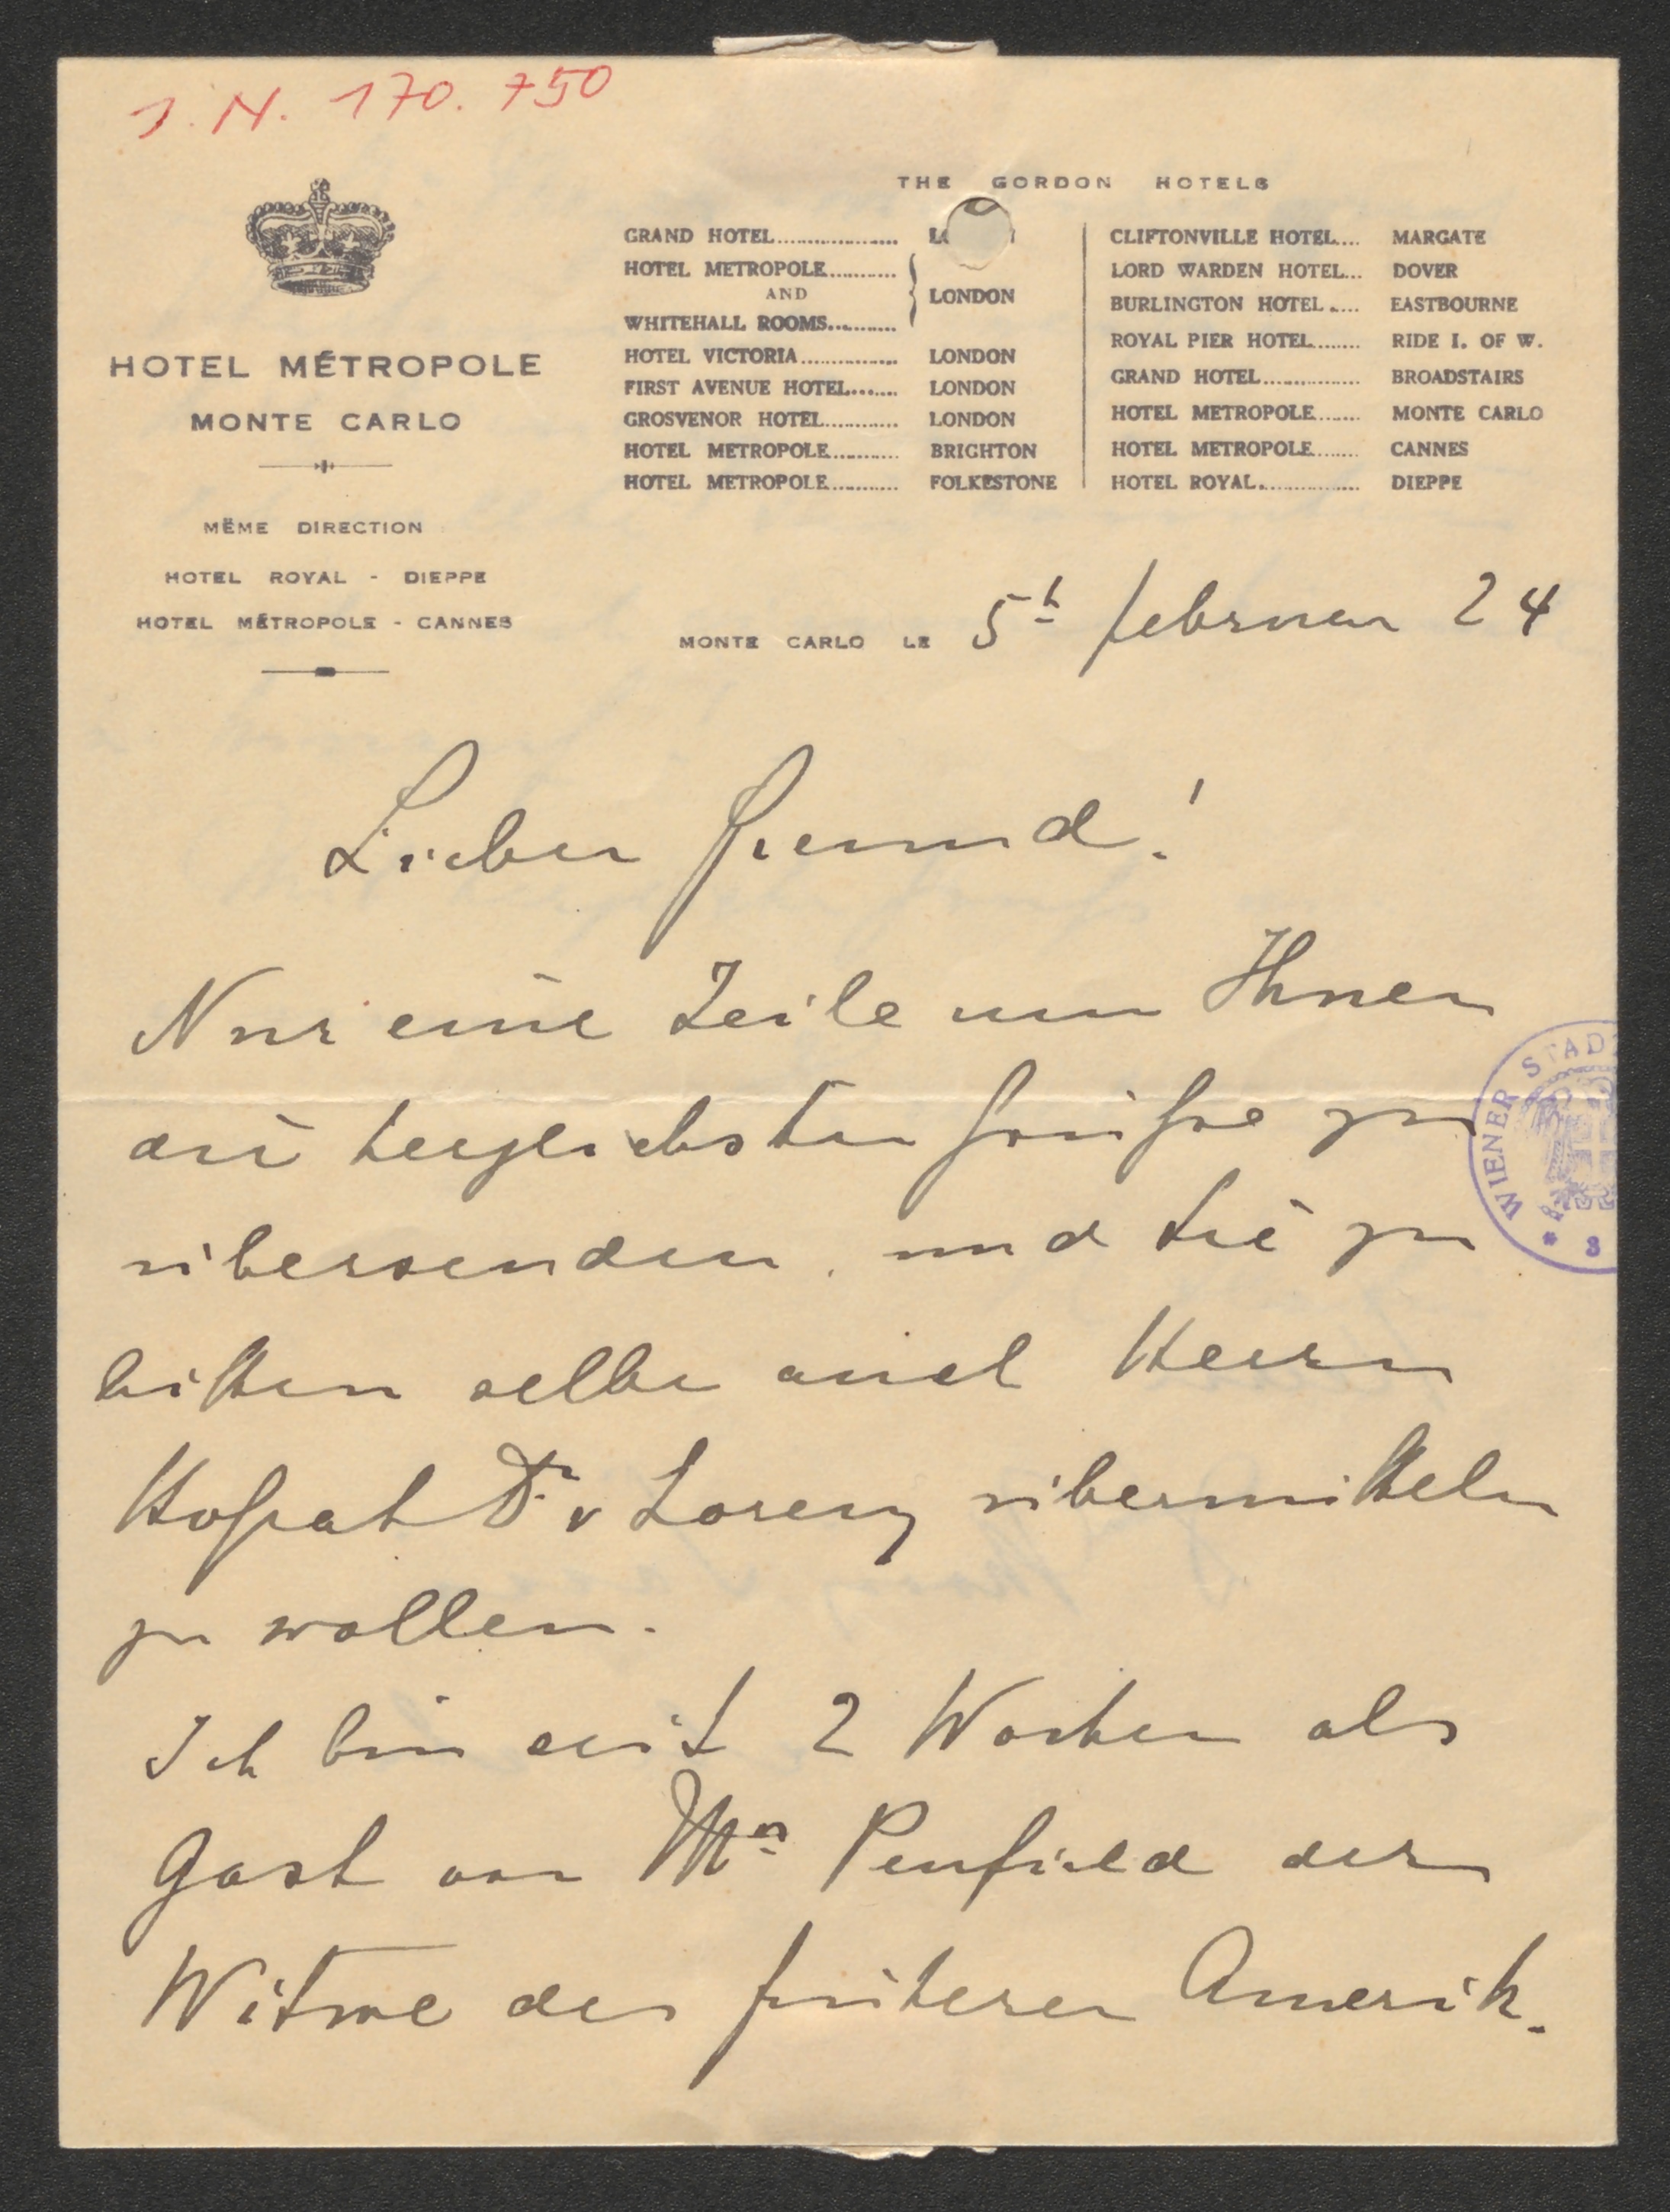 J. N. 170.750
HOTEL MÉTROPOLE
MONTE CARLO
MËME DIRECTION
HOTEL ROYAL - DIEPPE
HOTEL MÉTROPOLE - CANNES
THE GORDON HOTELS
GRAND HOTEL...................
HOTEL METROPOLE........... AND WHITEHALL ROOMS........... } LONDON
HOTEL VICTORIA............... LONDON
FIRST AVENUE HOTEL....... LONDON
GROSVENOR HOTEL............ LONDON
HOTEL METROPOLE........... BRIGHTON
HOTEL METROPOLE........... FOLKESTONE
CLIFTONVILLE HOTEL.... MARGATE
LORD WARDEN HOTEL... DOVER
BURLINGTON HOTEL..... EASTBOURNE
ROYAL PIER HOTEL........ RIDE I. OF W.
GRAND HOTEL................ BROADSTAIRS
HOTEL METROPOLE....... MONTE CARLO
HOTEL METROPOLE........ CANNES
HOTEL ROYAL................. DIEPPE
MONTE CARLO LE 5t februar 24
Lieber Freund!
Nur eine Zeile um Ihnen
die herzlichsten Grüsse zu
übersenden und Sie zu
bitten selbe auch Herrn
Hofrat Dr v Lorenz übermitteln
zu wollen.
Ich bin seit 2 Wochen als
Gast von Mrs Penfield der
Witwe des früheren Amerik.
WIENER STAD